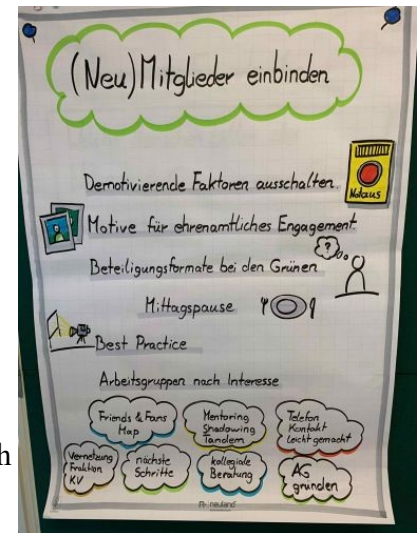 (Neu) Mitglieder einbinden
Demotivierende Faktoren ausschalten.
Notaus
Motive für ehrenamtliches Engagement
?
Beteiligungsformate bei den Grünen
Mittagspause
Best Practice
Arbeitsgruppen nach Interesse
Friends & Fans
Map
Mentoring
Shadowing
Tandem
Telefon
Kontakt
leicht gemacht
Vernetzung
Fraktion
KV
nächste
Schritte
kollegiale
Beratung
AG
gründen
neuland
h